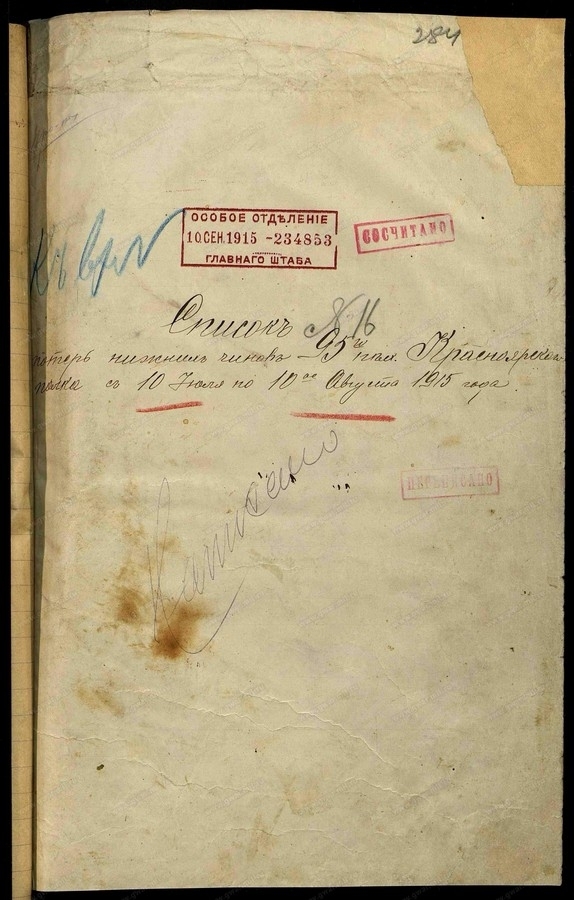 284
ОСОБОЕ ОТДѢЛЕНІЕ
10.СЕН.1915 -234853
ГЛАВНАГО ШТАБА
СОСЧИТАНО
Списокъ №16
потерь нижнихъ чиновъ 95го пѣх. Красноярскаго
полка съ 10 Іюля по 10ое Августа 1915 года.
ПЕРЕПИСАНО